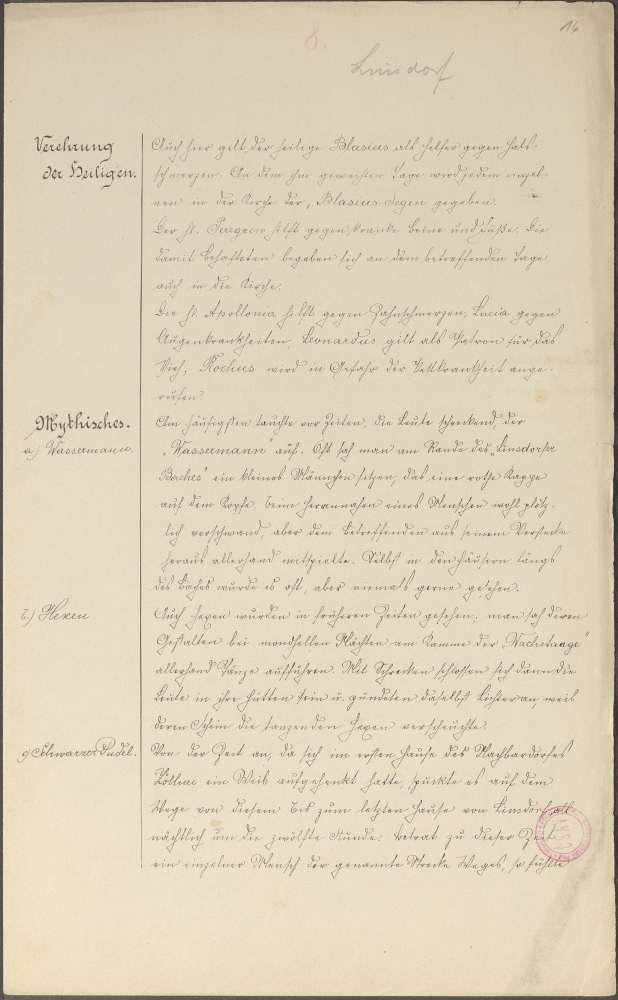 16
8.
Linsdorf
Verehrung
der Heiligen.
Auch hier gilt der heilige Blasius als Helfer gegen Hals-
schmerzen. An dem ihm geweihten Tage wird jedem einzel-
nen in der Kirche der „Blasius-Segen gegeben.
Der hl. hilft gegen kranke Beine und Füße. Die
damit Behafteten begeben sich an dem betreffenden Tage
auch in die Kirche.
Die hl. Apollonia hilft gegen Zahnschmerzen, Lucia gegen
Augenkrankheiten, Leonardus gilt als Patron für das
Vieh, Rochus wird in Gefahr der Pestkrankheit ange-
rufen.
Mythisches.
a) Wassermann.
Am häufigsten tauchte vor Zeiten, die Leute schreckend, der
„Wassermann" auf. Oft sah man am Rande des „Linsdorfer
Baches" ein kleines Männchen sitzen, das eine rothe Kappe
auf dem Kopfe, beim Herannahen eines Menschen wohl plötz-
lich verschwand, aber dem Betreffenden aus seinem Verstecke
heraus allerhand mitspielte. Selbst in den Häusern längs
des Baches wurde es oft, aber niemals gerne gesehen.
b.) Hexen
Auch Hexen wurden in früheren Zeiten gesehen, man sah deren
Gestalten bei mondhellen Nächten am Kamme der
allerhand Tänze aufführen. Mit Schrecken schlossen sich dann die
Leute in ihre Hütten ein u. zündeten daselbst Lichter an, weil
deren Schein die tanzenden Hexen verscheuchte.
c) Schwarzer Pudel.
Von der Zeit an, da sich im ersten Hause des Nachbardorfes
ein Weib aufgehenkt hatte, spuckte es auf dem
Wege von diesem bis zum letzten Hause von Linsdorf all-
nächtlich um die zwölfte Stunde. Betrat zu dieser Zeit
ein einzelner Mensch die genannte Strecke Weges, so fühlte